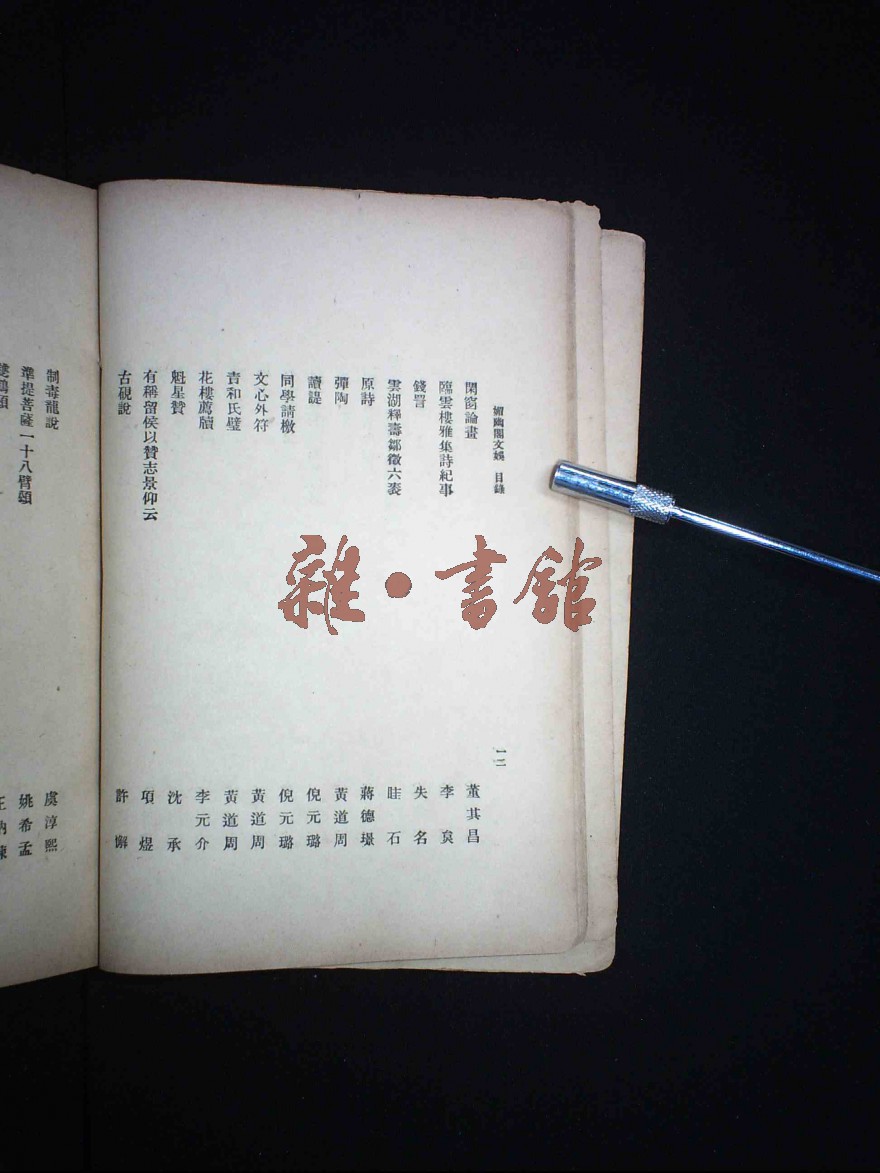 媚幽閣文娛 目錄 一二
閑窗論畫 董其昌
臨雲樓雅集詩紀事 李
錢詈 失名
雲湖釋壽鄒徵六表 畦石
原詩 蔣德璟
彈陶 黃道周
讀諟 倪元璐
同學請檄 倪元璐
文心外符 黃道周
責和氏璧 黃道周
花樓薦牘 李元介
魁星贊 沈承
有稱留侯以贊志景仰云 項煜
古硯說 許獬
制毒龍說 虞淳熙
準提菩薩一十八臂頌 姚希孟
雜·書館